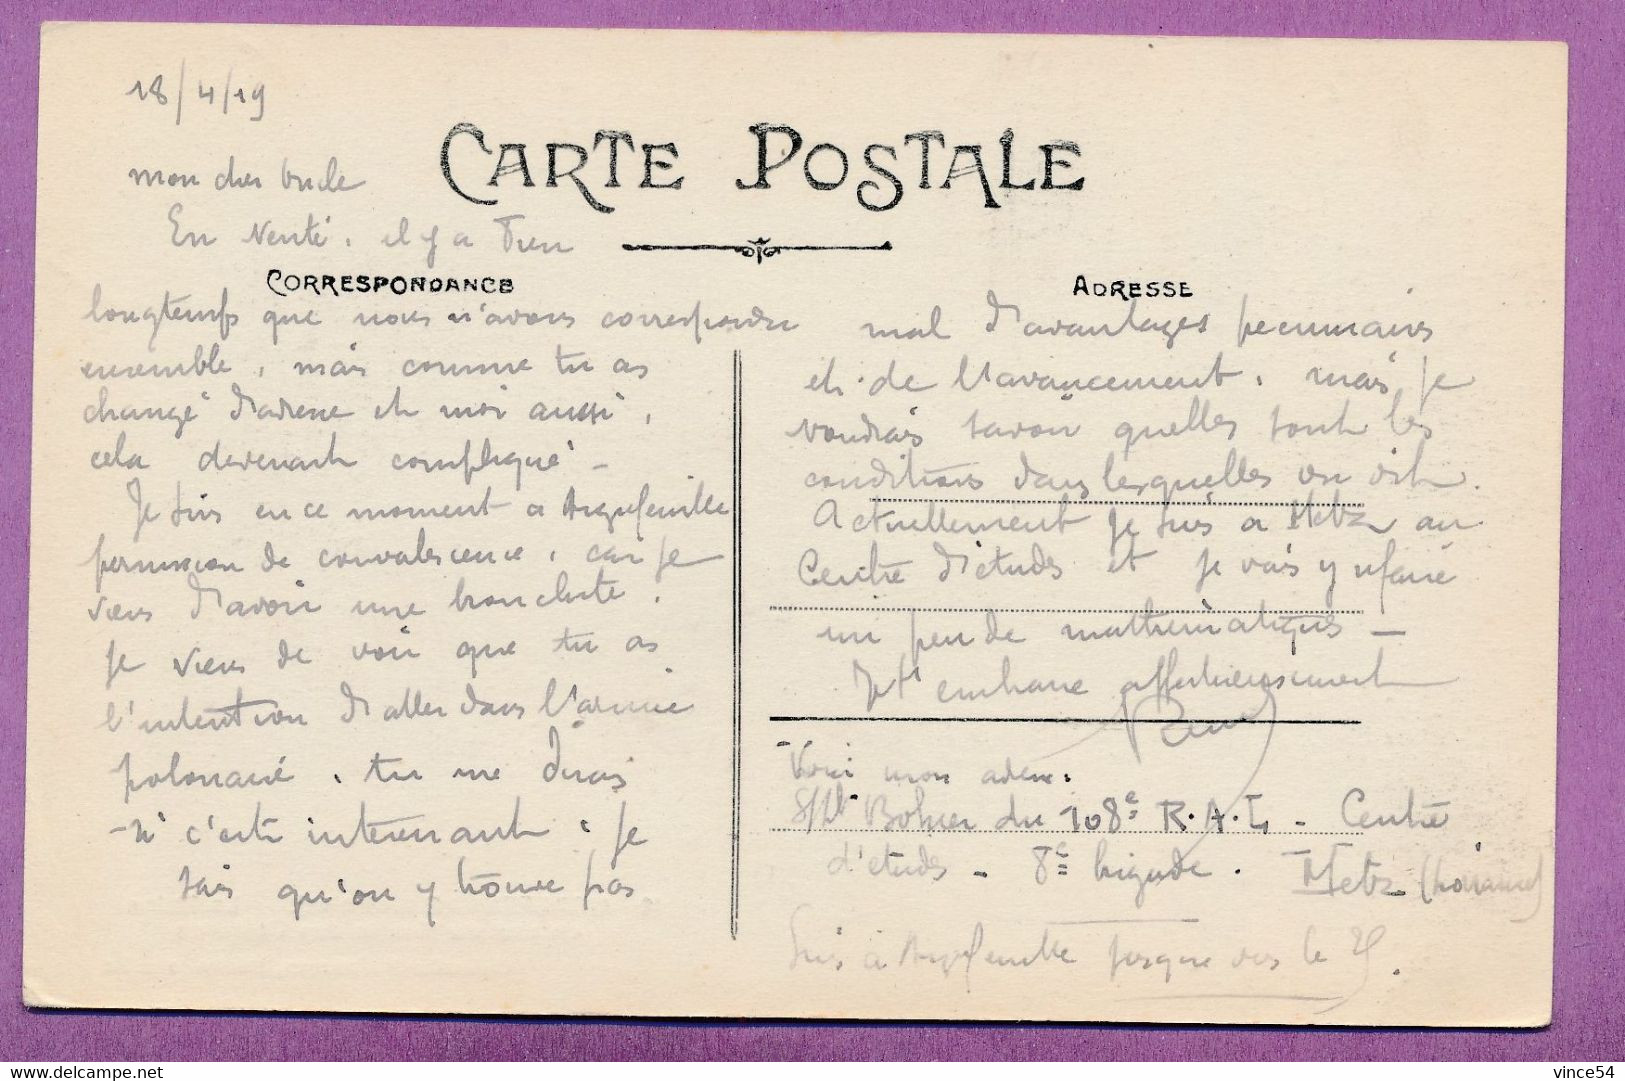 18/4/19
CARTE POSTALE
mon cher oncle
En vérité, il y a bien
CORRESPONDANCE
longtemps que nous n'avons correspondu
ensemble, mais comme tu as
changé d'adresse et moi aussi,
cela devenait compliqué -
Je suis en ce moment a Aigrefeuille
permission de convalescence, car je
viens d'avoir une bronchite.
je viens de voir que tu as
l'intention d'aller dans l'armée
polonaise, tu me diras
si c'est interessant, je
sais qu'on y trouve pas
ADRESSE
mal d'avantages pecuniaires
et de l'avancement, mais je
voudrais savoir quelles sont les
conditions dans lesquelles on vit.
Actuellement je suis a Metz au
Centre d'études et je vais y refaire
un peu de mathématiques -
Je t'embrasse affectueusement
René
Voici mon adresse:
S/Lt Bohrer du 108e R.A.L - Centre
d'etudes - 8e brigade. Metz (Lorraine)
Suis à Aigrefeuille jusque vers le 25.
delcampe.net
vince54